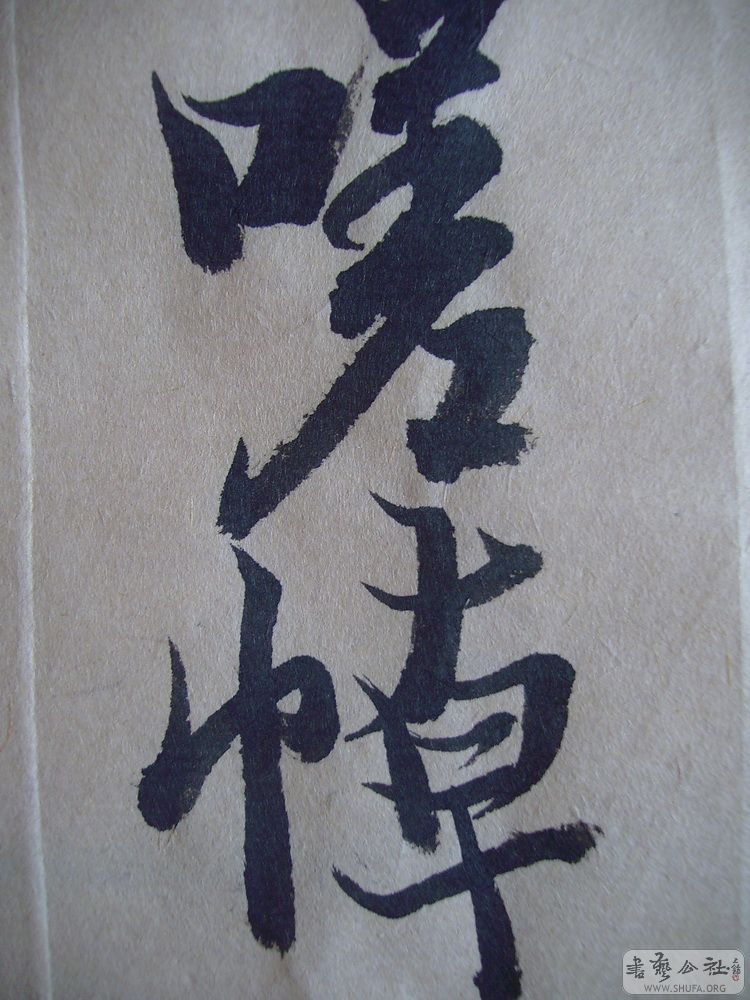 嗟悼
書藝公社
WWW.SHUFA.ORG